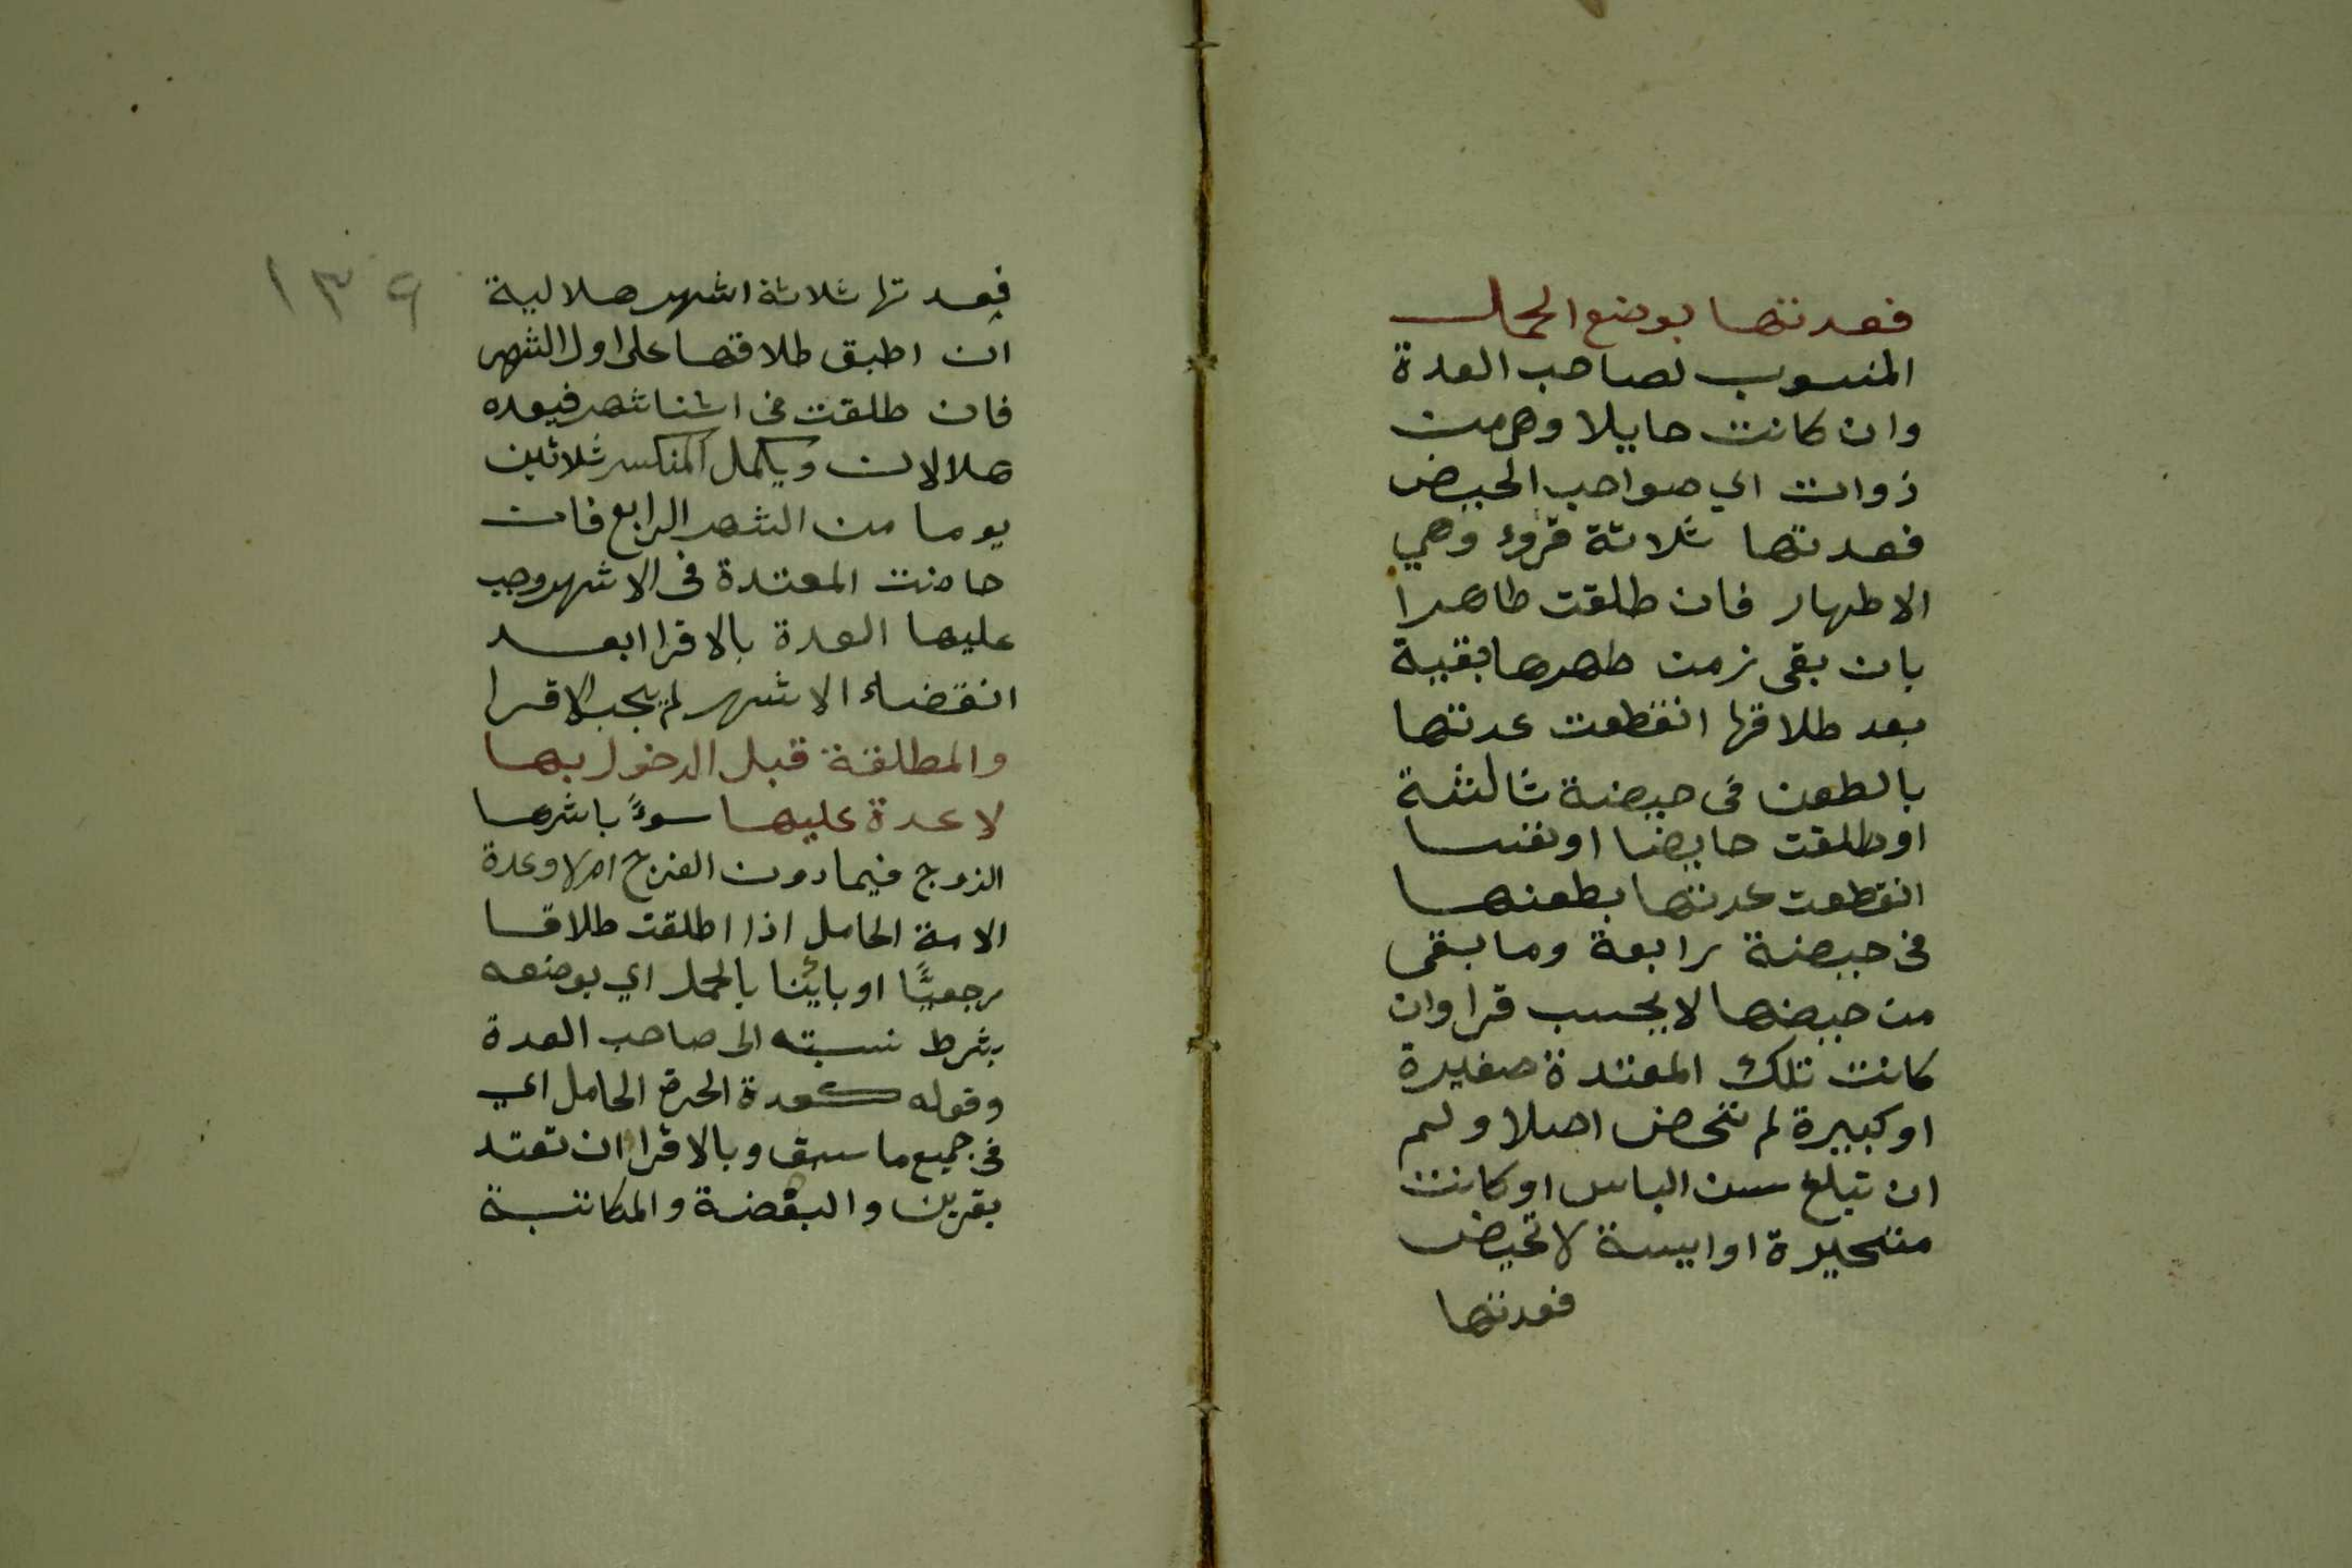 فعدتها بوضع الحمل
المنسوب لصاحب العدة
وان كانت حايلا وهي من
ذوات اي صواحب الحيض
فعدتها ثلاثة قروء وهي
الاطهار فان طلقت طاهرا
بان بقى زمن طهرها بقية
بعد طلاقها انقطعت عدتها
بالطعن فى حيضة ثالثة
او طلقت حايضا او نفسا
انقطعت عدتها بطعنها
فى حيضة رابعة وما بقى
من حيضها لا يحسب قرا وان
كانت تلك المعتدة صغيرة
او كبيرة لم تحض اصلا ولم
ان تبلغ سن الياس او كانت
متحيرة او ايسة لا تحيض
فعدتها
١٣٩
فعدتها ثلاثة اشهر هلالية
ان اطبق طلاقها على اول الشهر
فان طلقت فى اثنا شهر فبعده
هلالان ويكمل المنكسر ثلاثين
يوما من الشهر الرابع فان
حاضت المعتدة فى الاشهر وجب
عليها العدة بالاقرا ابعد
انقضاء الاشهر لم يجب الاقرا
والمطلقة قبل الدخول بها
لا عدة عليها سوءً باشرها
الزوج فيما دون الفرج ام لا وعدة
الامة الحامل اذا اطلقت طلاقا
رجعيًّا او بائنا بالحمل اي بوضعه
بشرط نسبته الى صاحب العدة
وقوله كعدة الحرة الحامل اي
فى جميع ما سبق وبالاقرا ان تعتد
بقرين والبعضة والمكاتبة